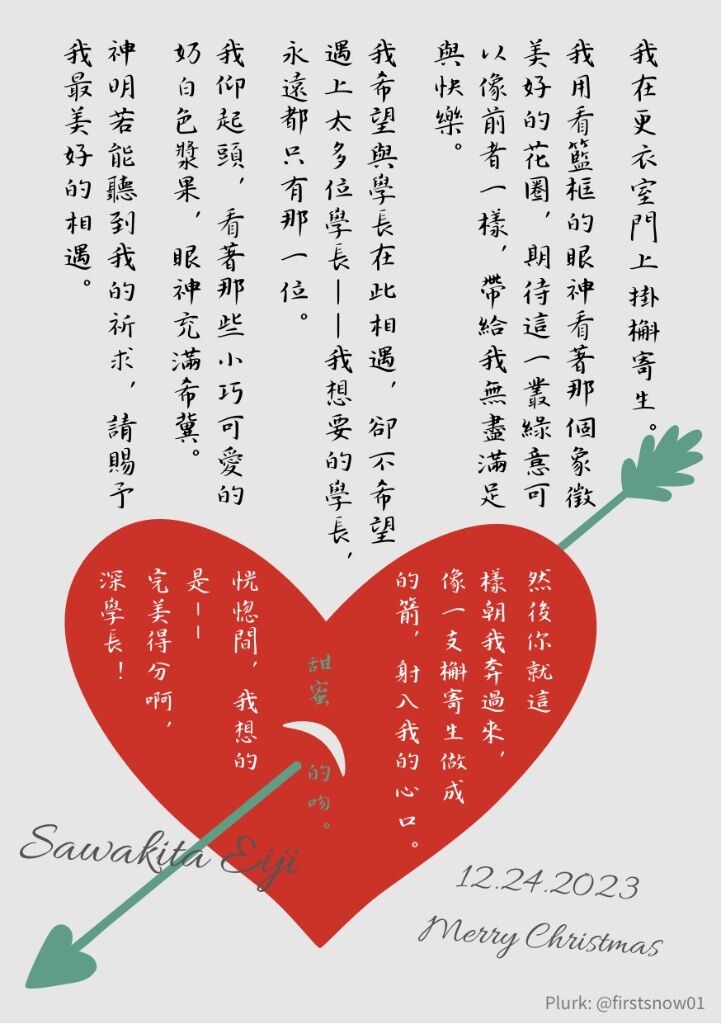 我在更衣室門上掛槲寄生。
我用看籃框的眼神看著那個象徵
美好的花圈，期待這一叢綠意可
以像前者一樣，帶給我無盡滿足
與快樂。
我希望與學長在此相遇，卻不希望
遇上太多位學長——我想要的學長，
永遠都只有那一位。
我仰起頭，看著那些小巧可愛的
奶白色漿果，眼神充滿希冀。
神明若能聽到我的祈求，請賜予
我最美好的相遇。
然後你就這
樣朝我奔過來，
像一支槲寄生做成
的箭，射入我的心口。
甜蜜的吻。
恍惚間，我想的
是——
完美得分啊，
深學長！
Sawakita Eiji
12.24.2023
Merry Christmas
Plurk: @firstsnow01